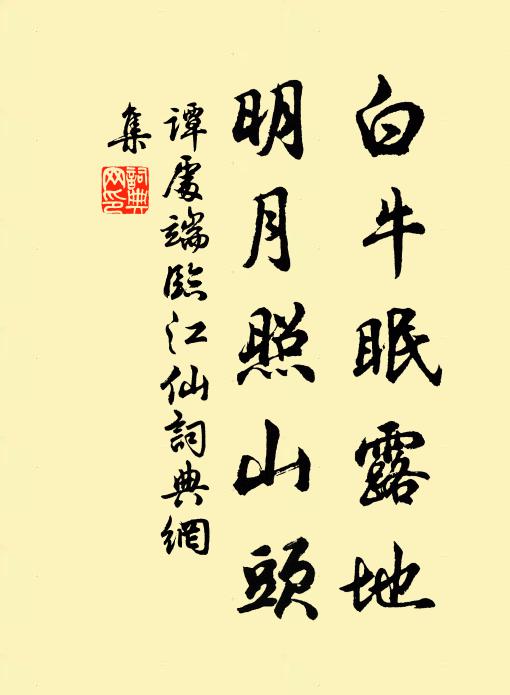 白牛眠露地
明月照山頭
谭處端臨江仙詞典網
集
詞典網印